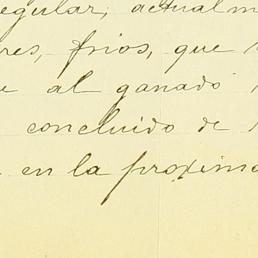 egular, actualm
res, frios, que
e al ganado
concluido de
en la proxima